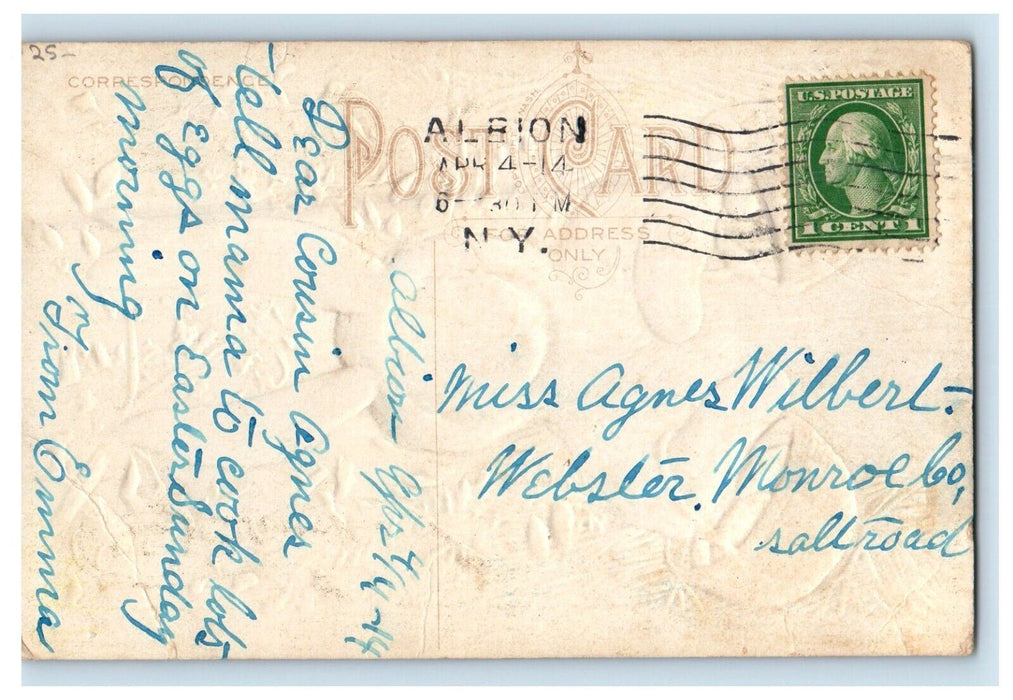 25-
CORRESPONDENCE
POST CARD
FOR ADDRESS
ONLY
ALBION
APR 4-14
6-30 PM
N.Y.
U.S. POSTAGE
1 CENT 1
Albion Apr 4/14
Dear Cousin Agnes
tell mama to cook lots
of Eggs on Easter Sunday
morning
from Emma
Miss Agnes Wilbert.
Webster, Monroe Co,
salt road